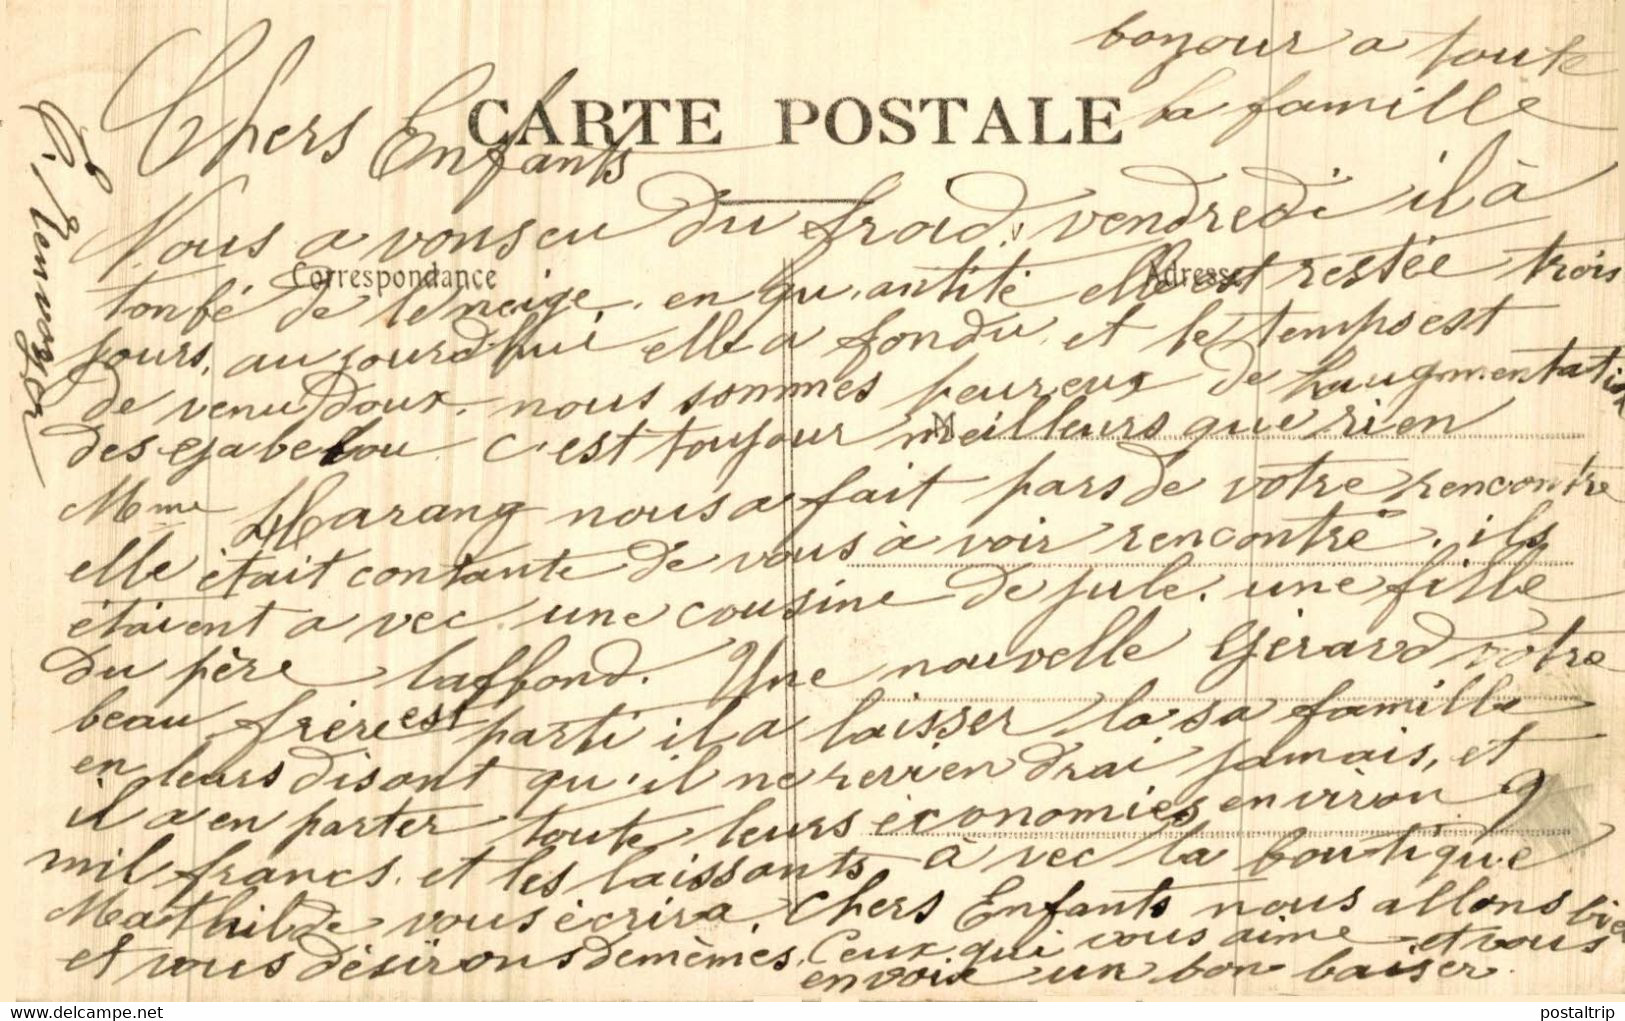 bonjour a toute
la famille
CARTE POSTALE
Chers Enfants
Nous a vons eu du froid. vendredi il à
Correspondance
Adresse
tonbé de le neige. en qu'antité elle est restée trois
jours. aujourd'hui elle a fondu et le temps est
de venu doux. nous sommes heureux de l'augmentation
des c'est toujour meilleurs que rien
Mme Marang nous a fait pars de votre rencontre
elle était contante de vous à voir rencontré. ils
étaient a vec une cousine de jule. une fille
du père laffond. Une nouvelle Gérard votre
beau frère est parti il a laisser la sa famille
en leurs disant qu'il ne reviendrai jamais, et
il a en porter toute leurs économies environ 9
mil francs. et les laissants à vec la boutique
Mathilde vous écrira. Chers Enfants nous allons bien
et vous désirons demèmes. Ceux qui vous aime et vous
envoie un bon baiser
delcampe.net
postaltrip